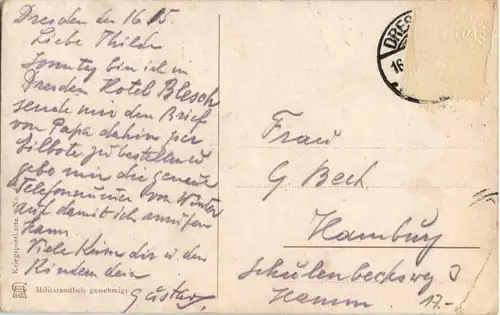 Dresden den 16.5.
Liebe Thilde
Sonntag bin ich in
Dresden Hotel Blesch
sende mir den Brief
von Papa dahin per
Eilbote zu bestellen u
gebe mir die genaue
Telefonnummer von
auf damit ich anrufen
kann
Viele Küsse dir u den
Kindern dein
Gustav
Kriegspostkarte No
Militäramtlich genehmigt
DRES
16
Frau
G Bech
Hamburg
Schulenbecksweg 3
Hamm 17.-